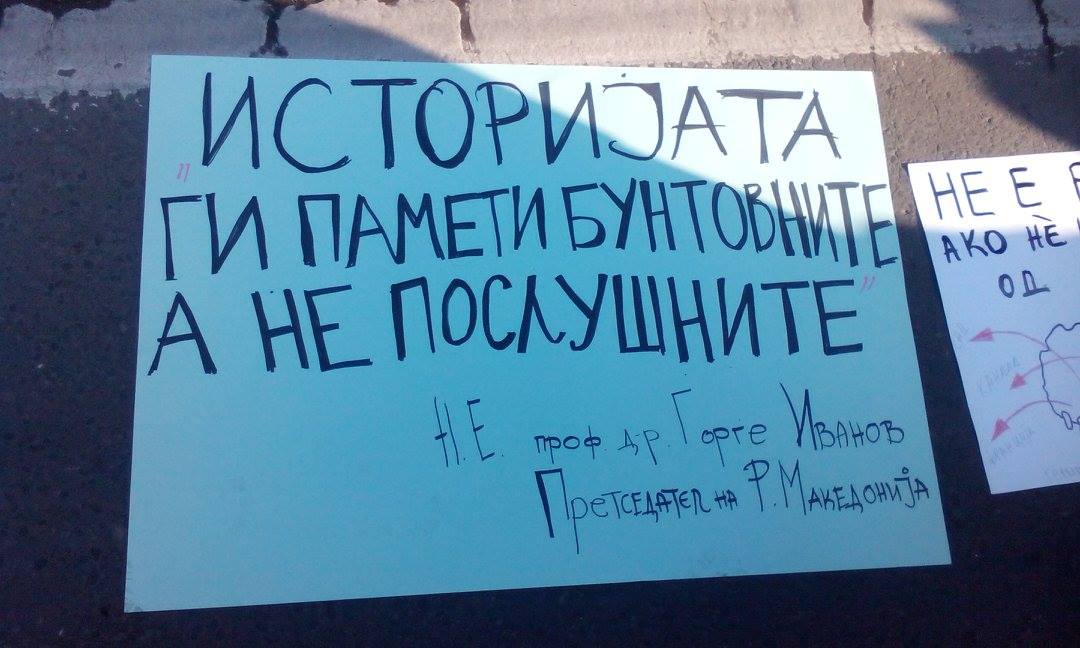 "ИСТОРИЈАТА
ГИ ПАМЕТИ БУНТОВНИТЕ
А НЕ ПОСЛУШНИТЕ"
Н.Е. проф. д.р. Ѓорѓе Иванов
Претседател на Р. Македонија
НЕ Е
АКО НЀ
ОД
КАНАДА